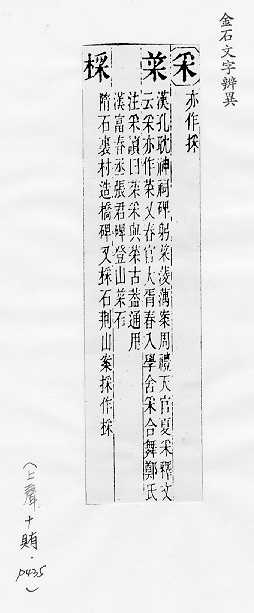 金石文字辨異
采
亦作採
菜
漢孔耽神祠碑躬菜淩藕案周禮天官夏采釋文
云采亦作菜又春官大胥春入學舍采合舞鄭氏
注采讀曰菜采與菜古葢通用
漢富春丞張君碑登山菜石
採
隋石裏村造橋碑又採石荆山案採作採
(上聲十賄.
p435)